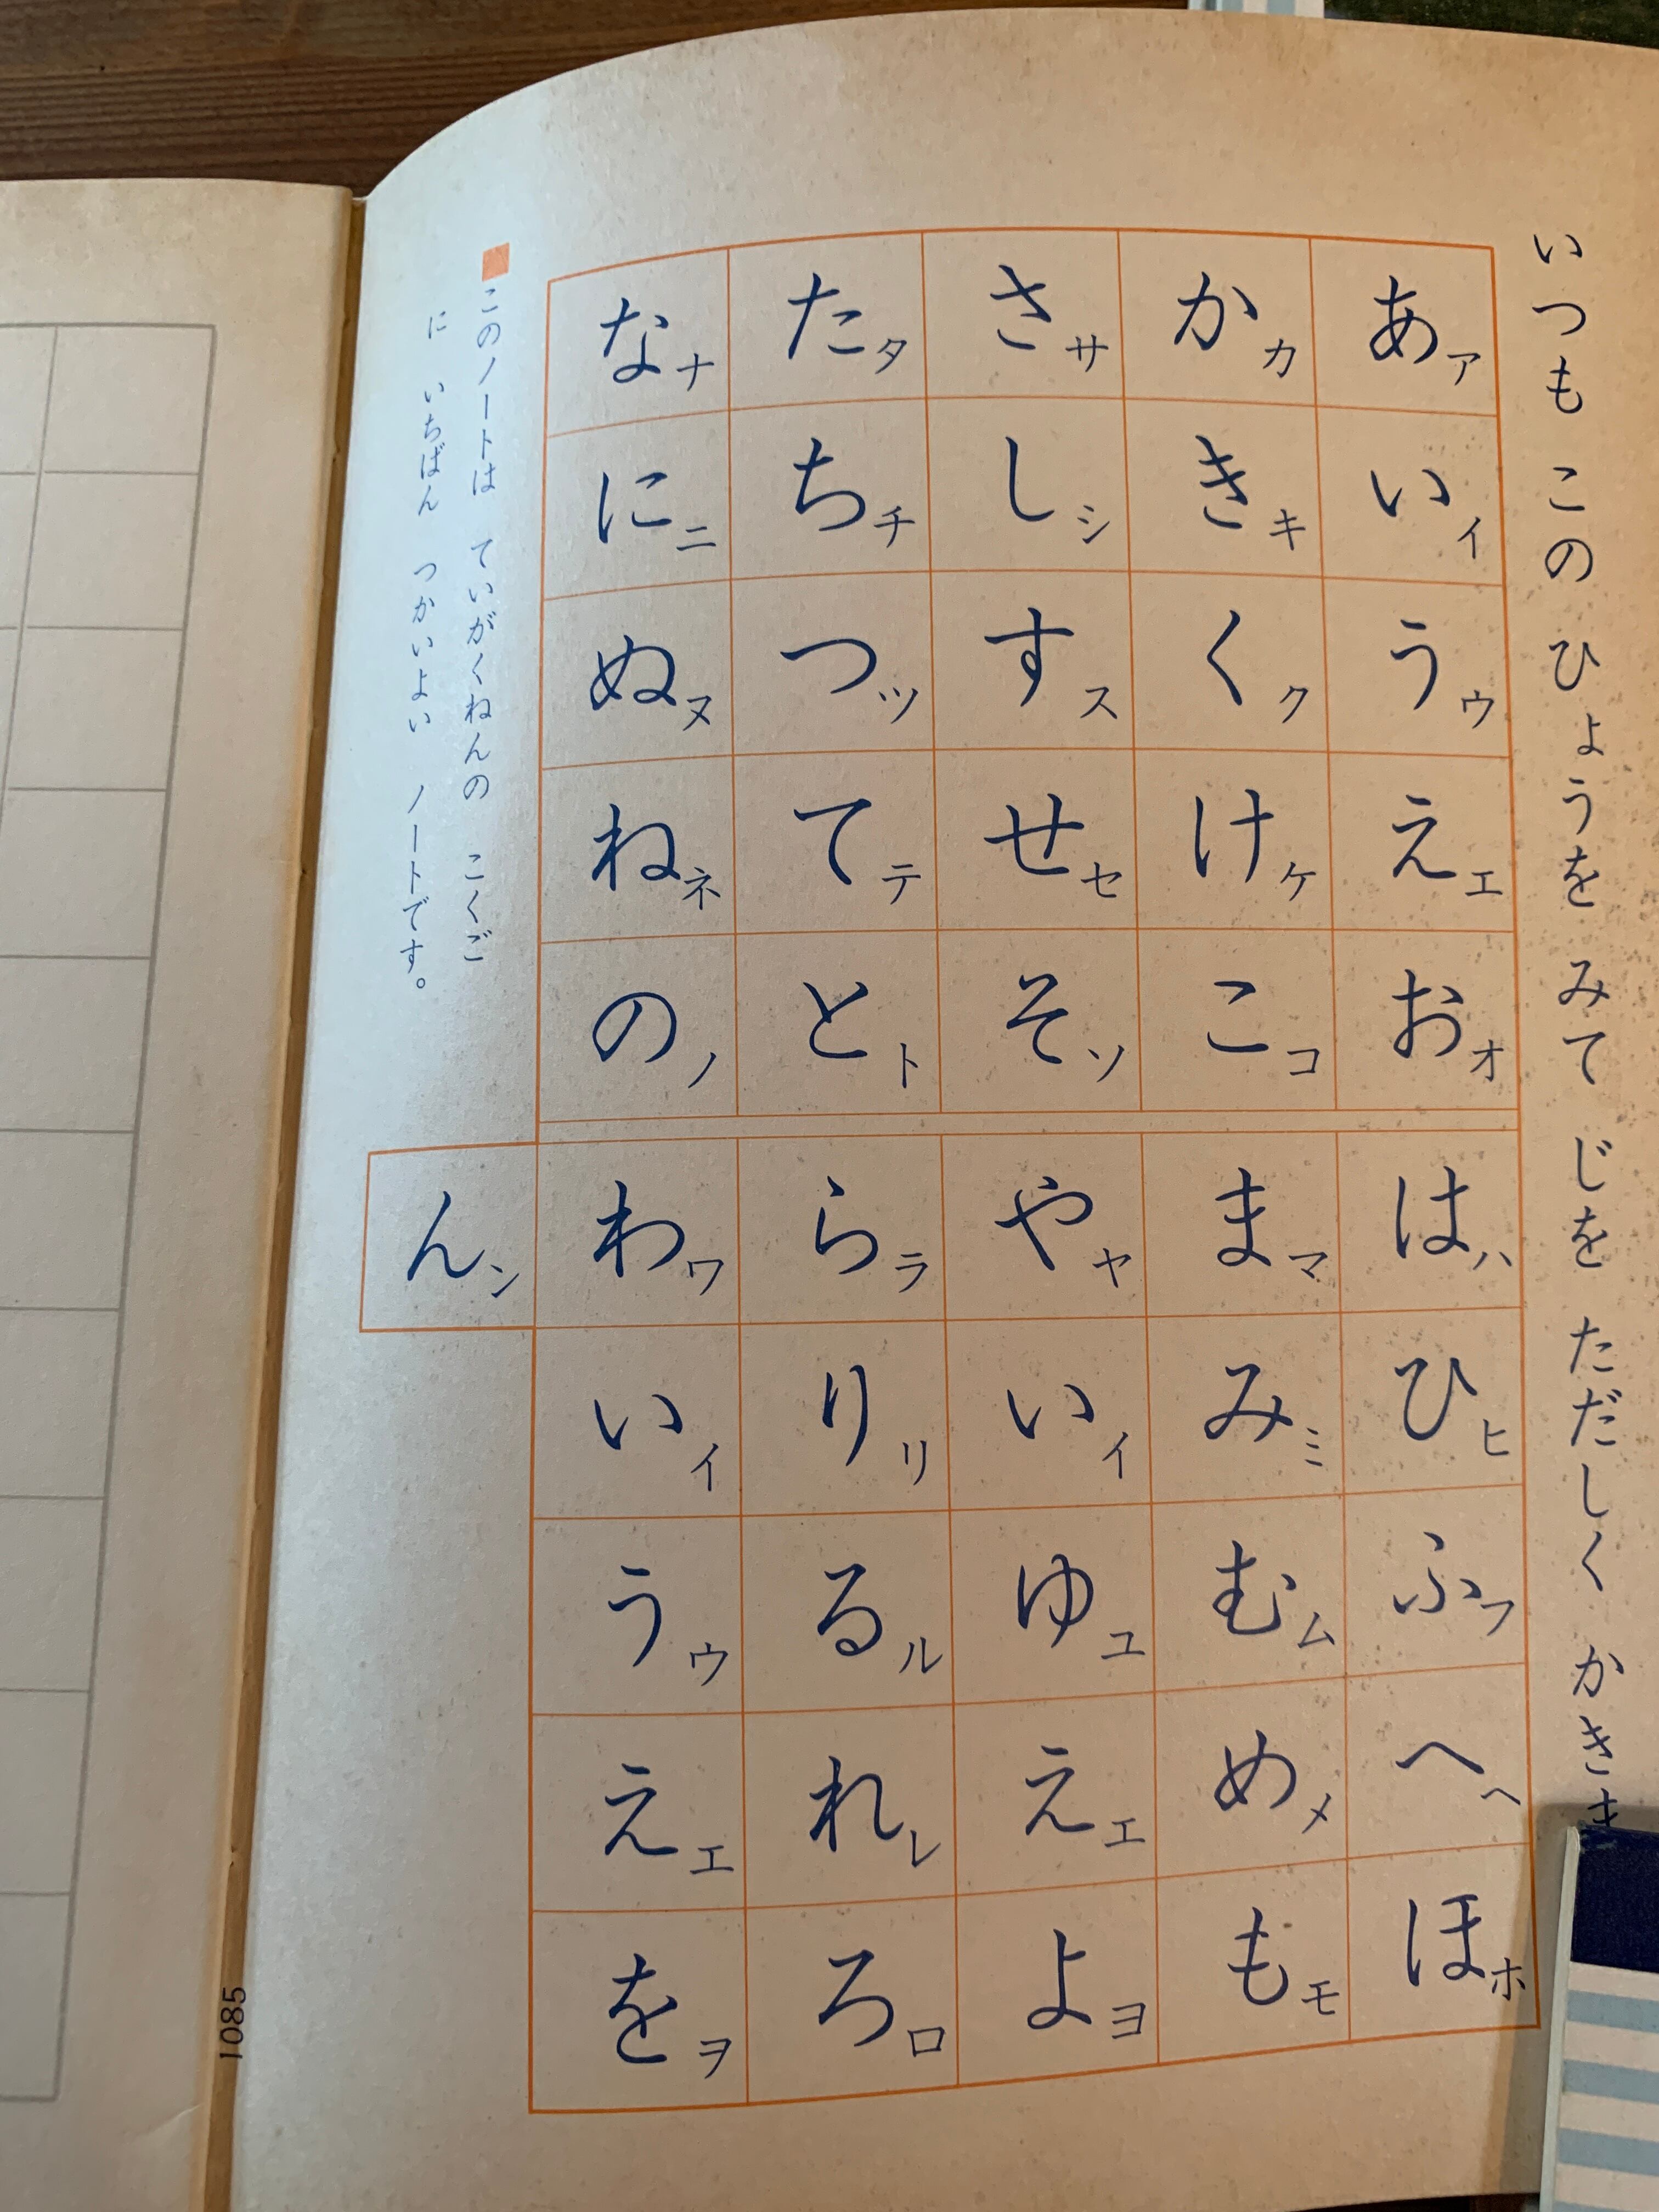 いつも この ひょうを みて じを ただしく かき
あア いイ うウ えエ おオ
かカ きキ くク けケ こコ
さサ しシ すス せセ そソ
たタ ちチ つツ てテ とト
なナ にニ ぬヌ ねネ のノ
はハ ひヒ ふフ へヘ ほホ
まマ みミ むム めメ もモ
やヤ いイ ゆユ えエ よヨ
らラ りリ るル れレ ろロ
わワ いイ うウ えエ をヲ
んン
■このノートは ていがくねんの こくご
に いちばん つかいよい ノートです。
1085